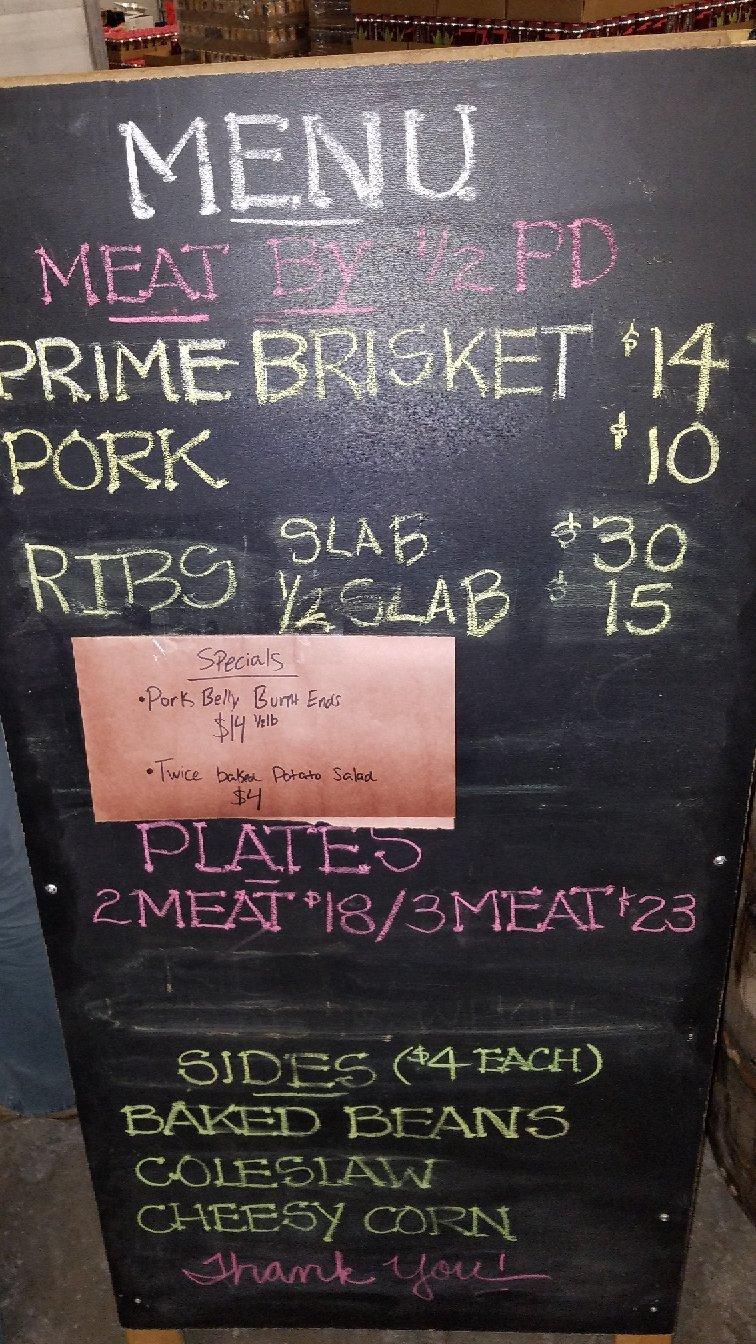 MENU
MEAT BY 1/2 PD
PRIME BRISKET $14
PORK $10
RIBS SLAB $30
1/2 SLAB $15
Specials
• Pork Belly Burnt Ends
$14 1/2 lb
• Twice baked Potato Salad
$4
PLATES
2 MEAT $18/3 MEAT $23
SIDES ($4 EACH)
BAKED BEANS
COLESLAW
CHEESY CORN
Thank You!